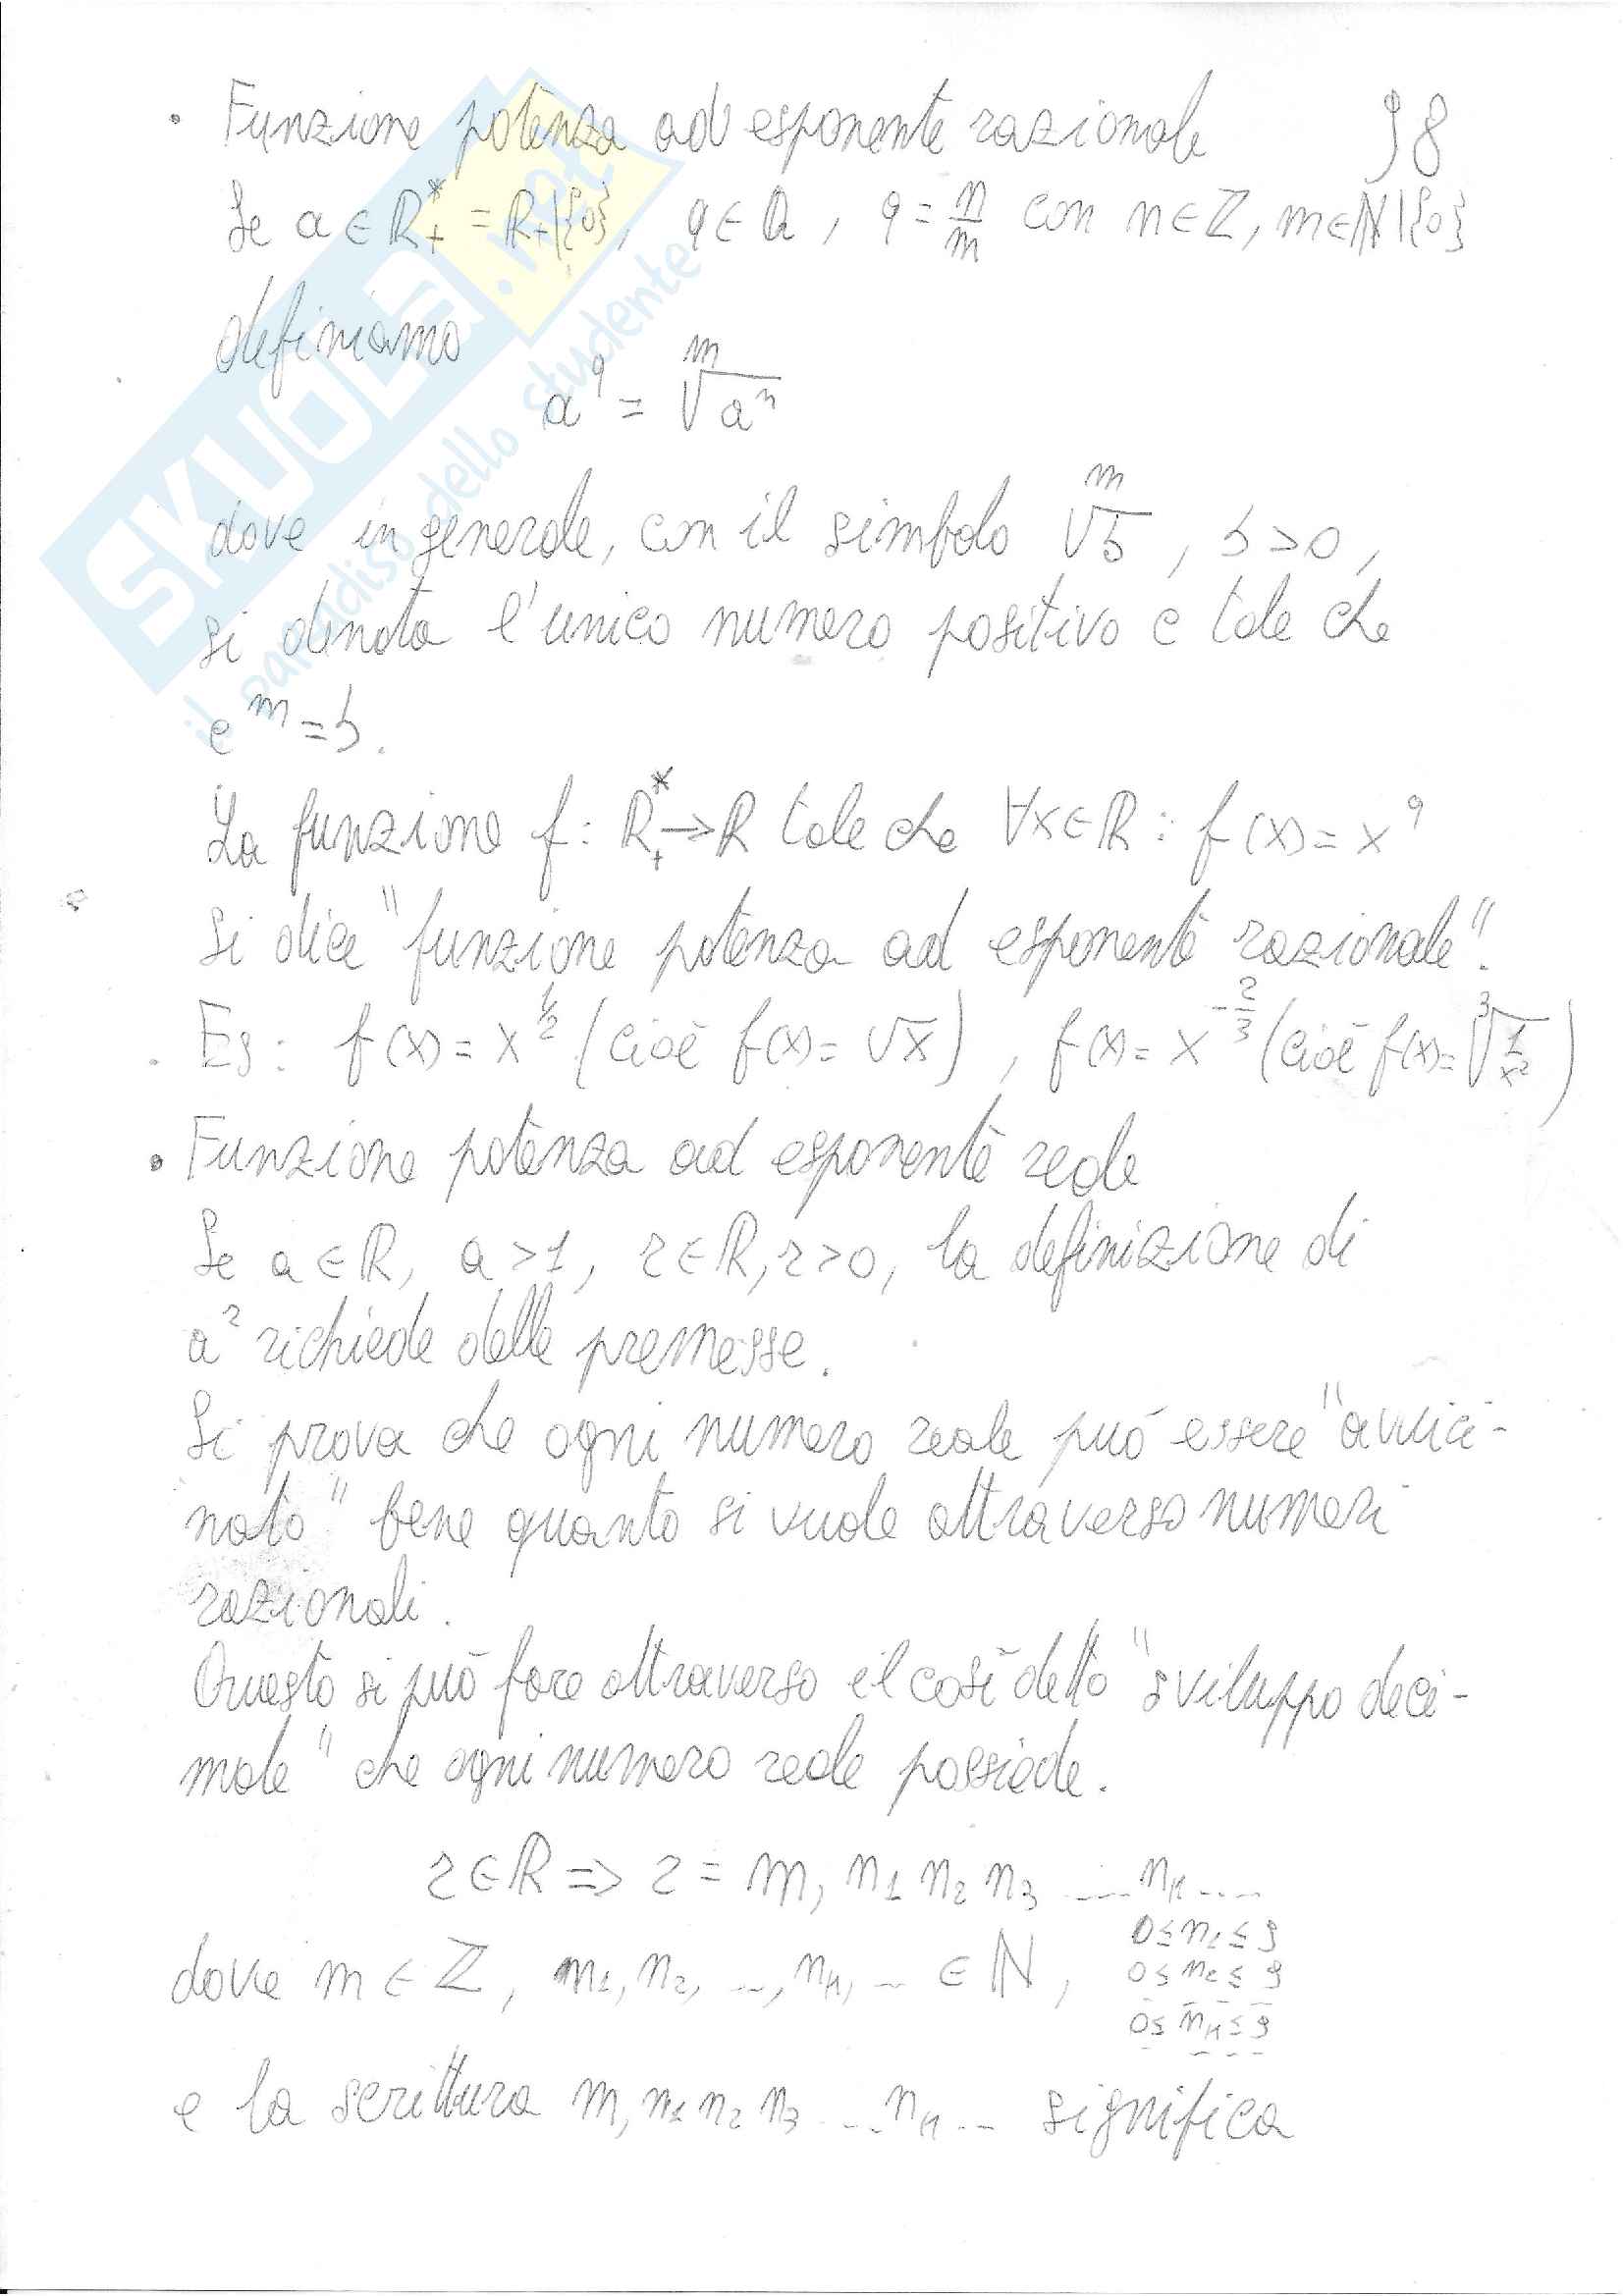 • Funzione potenza ad esponente razionale 98
Se a ∈ ℝ₊* = ℝ₊\{0}, q ∈ ℚ, q = n/m con n ∈ ℤ, m ∈ ℕ\{0}
definiamo
a^q = ᵐ√(aⁿ)
dove in generale, con il simbolo ᵐ√b, b > 0,
si denota l'unico numero positivo c tale che
c^m = b.
La funzione f: ℝ₊* → ℝ tale che ∀x ∈ ℝ : f(x) = x^q
si dice "funzione potenza ad esponente razionale".
Es: f(x) = x^½ (cioè f(x) = √x), f(x) = x^(-2/3) (cioè f(x) = ³√(1/x²))
• Funzione potenza ad esponente reale
Se a ∈ ℝ, a > 1, r ∈ ℝ, r > 0, la definizione di
a^r richiede delle premesse.
Si prova che ogni numero reale può essere "avvici-
nato" bene quanto si vuole attraverso numeri
razionali.
Questo si può fare attraverso il così detto "sviluppo deci-
male" che ogni numero reale possiede.
r ∈ ℝ => r = m, n₁ n₂ n₃ .... nₖ ....
0 ≤ n₁ ≤ 9
dove m ∈ ℤ, n₁, n₂, ..., nₖ, .. ∈ ℕ, 0 ≤ n₂ ≤ 9
- - - -
0 ≤ nₖ ≤ 9
- - - -
e la scrittura m, n₁ n₂ n₃ ... nₖ ... significa
SKUOLA.net
il paradiso dello studente